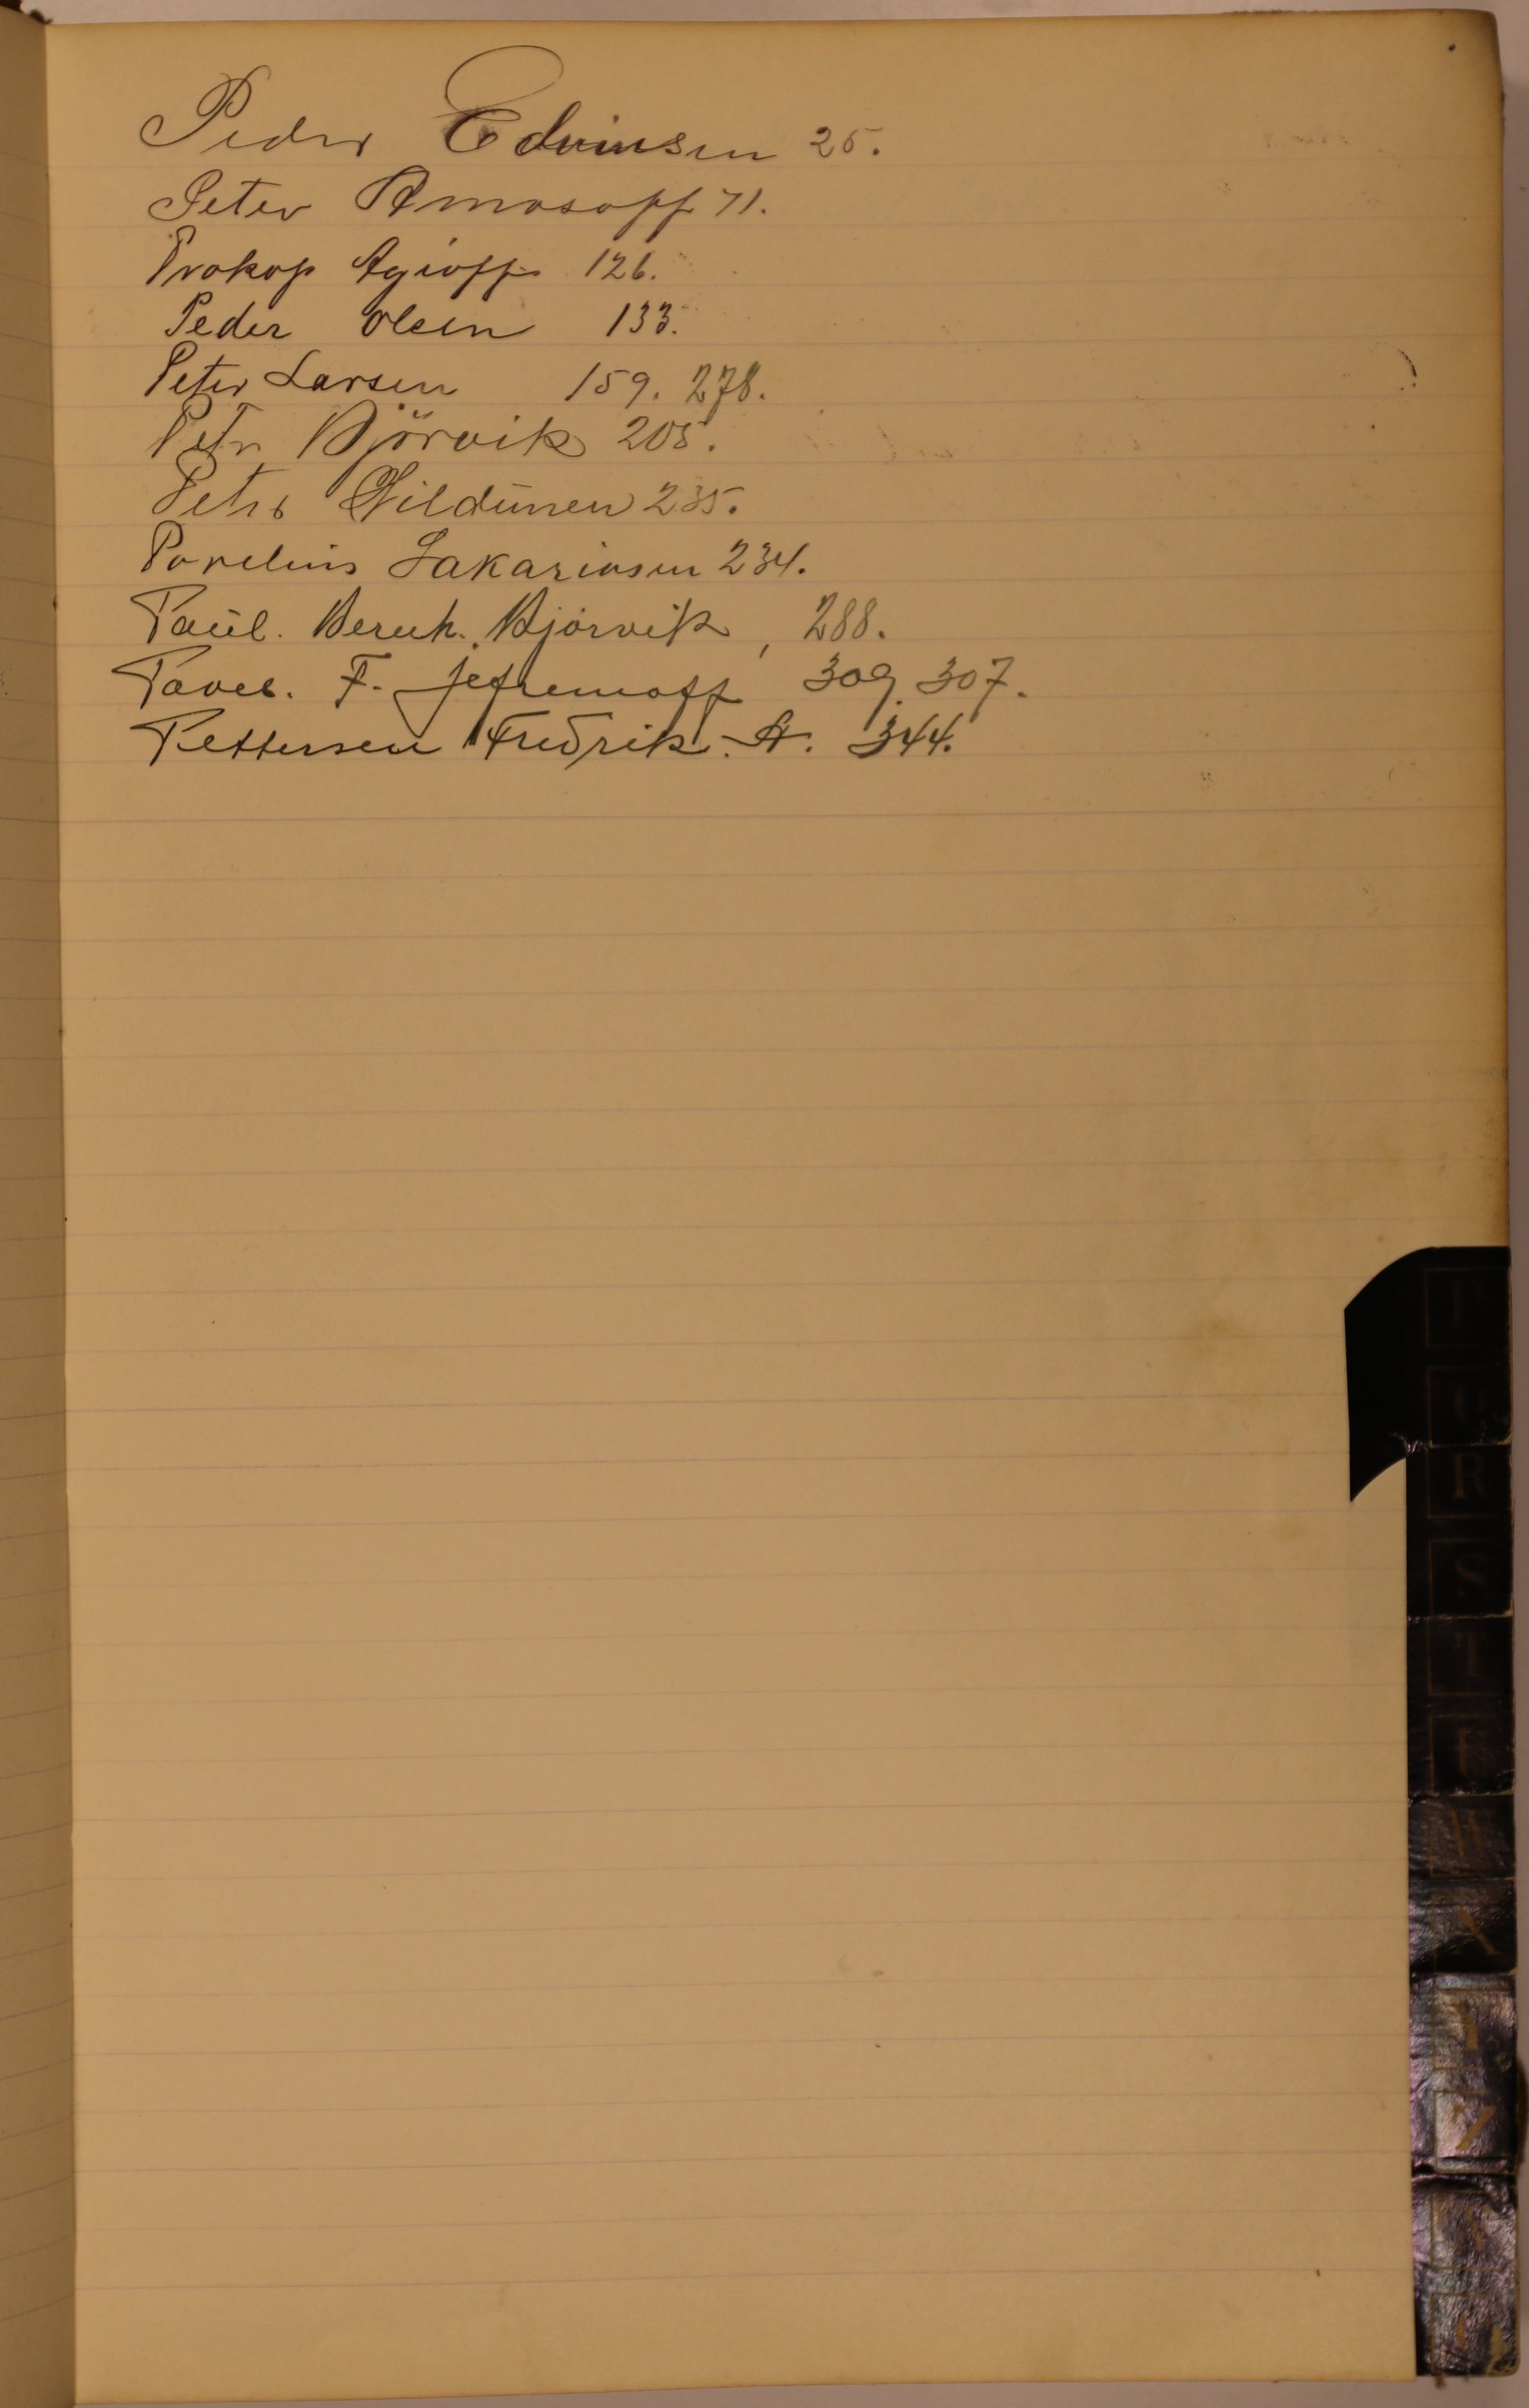 Peder Edvinsen 25.
Peter Amosoff 71.
Prokop Agioff 126.
Peder Olsen 133.
Peter Larsen 159. 278.
Petr Björvik 205.
Peter 235.
Sakariasen 234.
Paul. Bernh. Bjørvik, 288.
Pavel. F. Jefremoff 309. 307.
Pettersen Fredrik. A. 344.
R
S
T